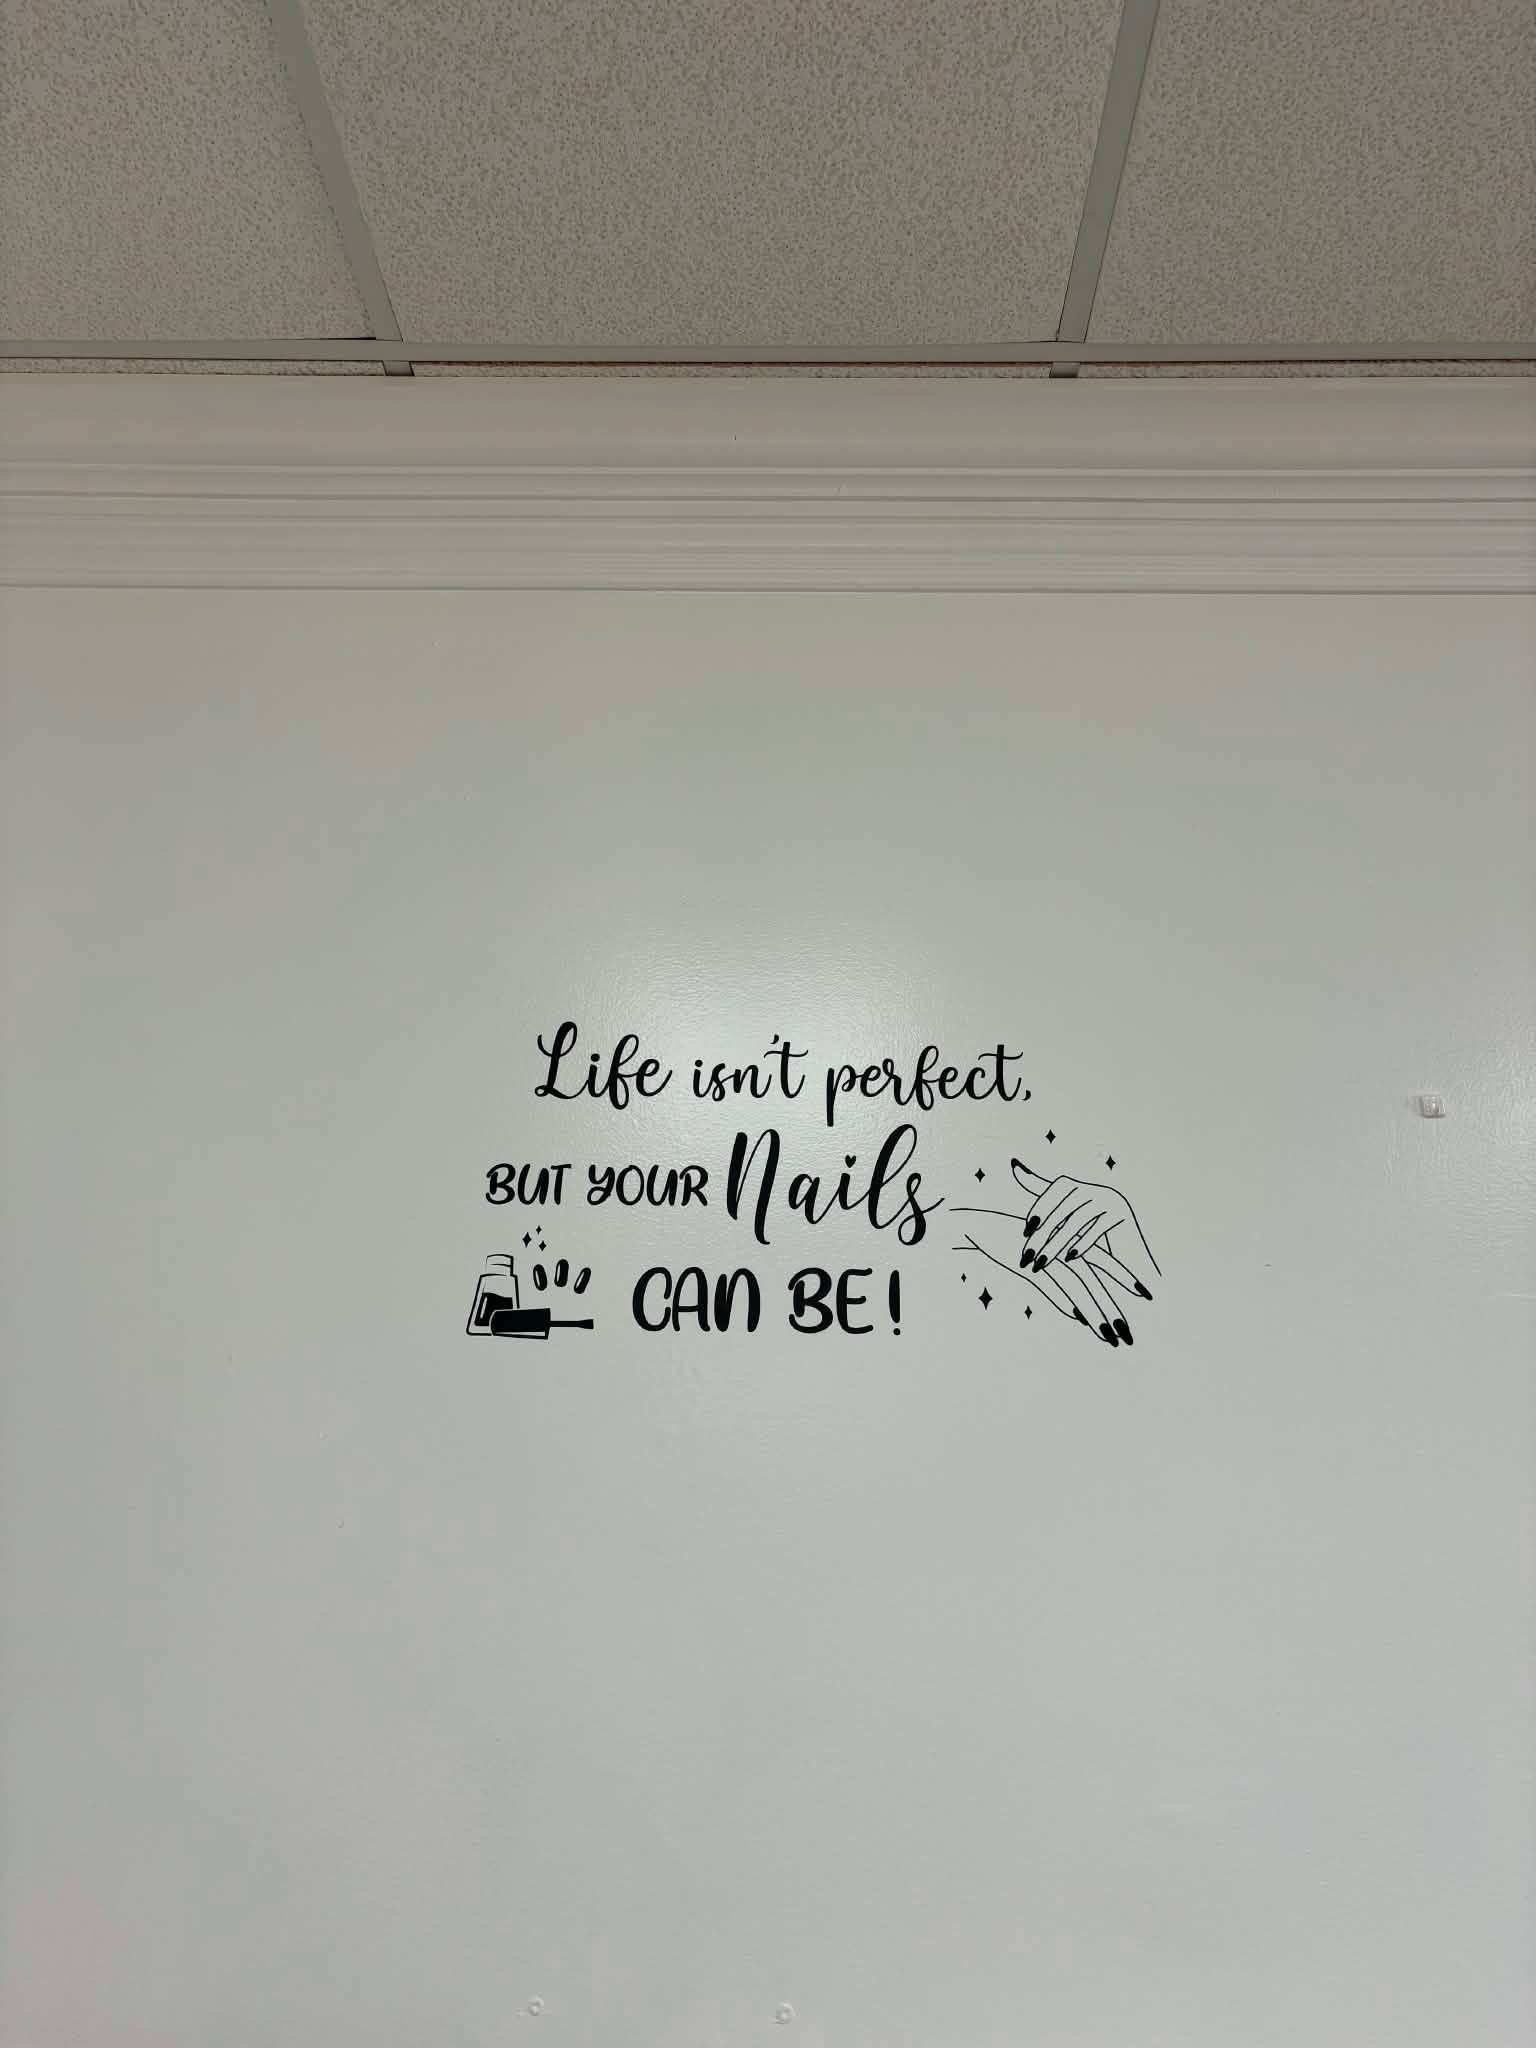 Life isn't perfect,
BUT YOUR Nails
CAN BE!